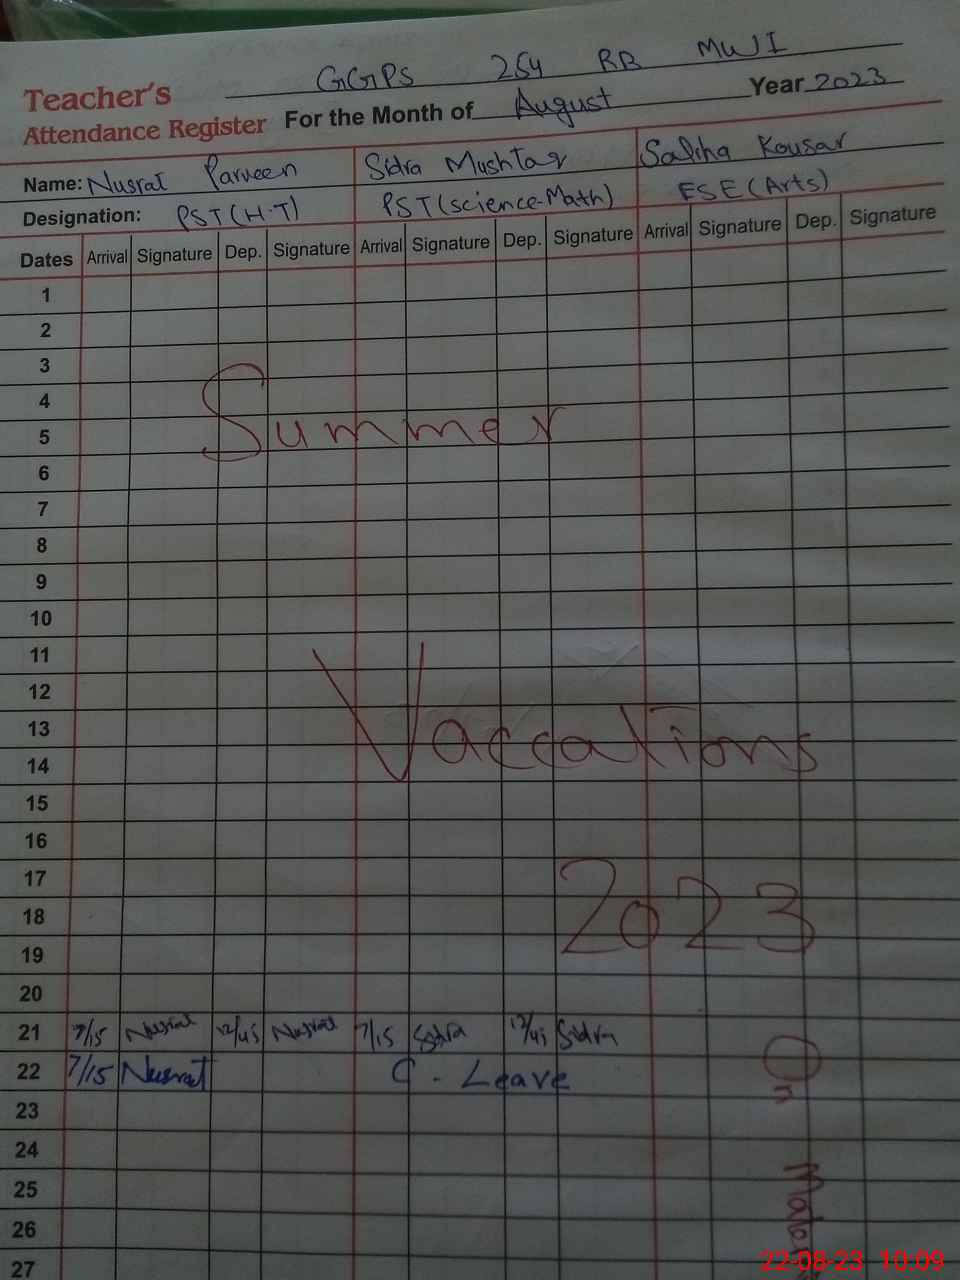 GGPS 254 RB MWI
Teacher's
Attendance Register For the Month of August Year 2023
Name: Nusrat Parveen Sidra Mushtaq Saliha Kousar
Designation: PST(H.T) PST(science-Math) ESE(Arts)
Dates Arrival Signature Dep. Signature Arrival Signature Dep. Signature Arrival Signature Dep. Signature
1
2
3
4
Summer
5
6
7
8
9
10
11
12
13
Vaccations
14
15
16
17
2023
18
19
20
21 7/15 Nusrat 12/45 Nusrat 7/15 Sidra 12/45 Sidra
22 7/15 Nusrat C. Leave
On
23
24
25
26
27
22-08-23 10:09